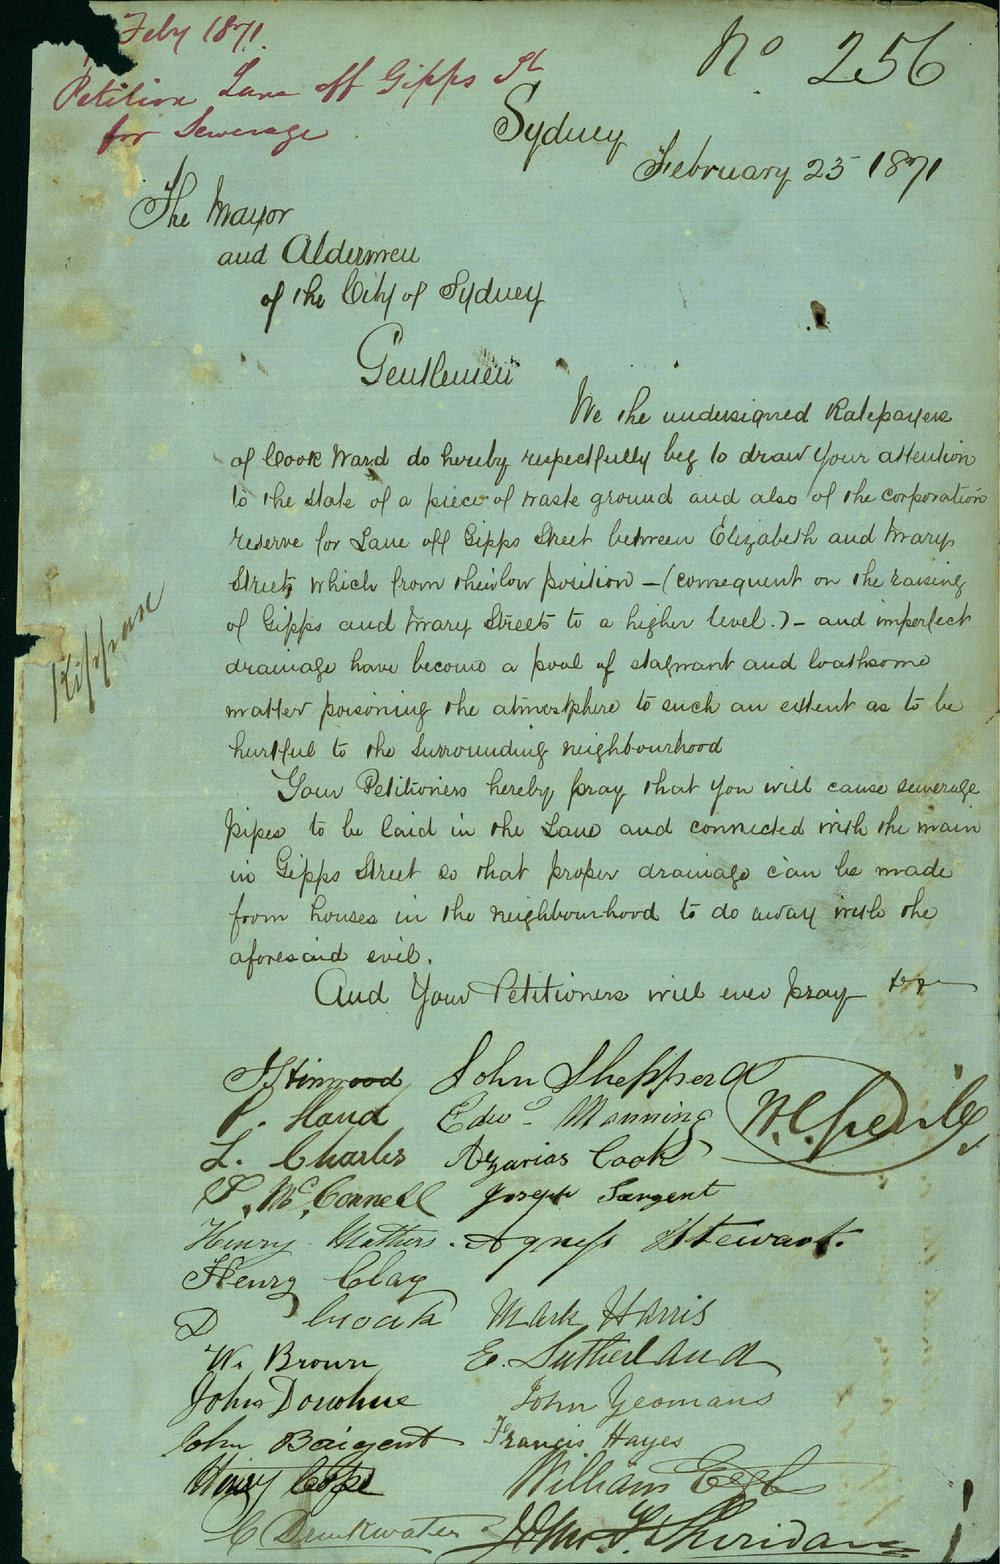 Feby 1871
Petition Lane off Gipps St
for Sewerage
No 256
Sydney
February 23 1871
The Mayor
and Aldermen
of the City of Sydney
Gentlemen
We the undersigned Ratepayers
of Cook Ward do hereby respectfully beg to draw your attention
to the state of a piece of waste ground and also of the corporation
reserve for Lane off Gipps Street between Elizabeth and Mary
Streets which from their low position – (consequent on the raising
of Gipps and Mary Streets to a higher level.) – and imperfect
drainage have become a pool of stagnant and loathsome
matter poisoning the atmosphere to such an extent as to be
hurtful to the surrounding neighbourhood
Your Petitioners hereby pray that you will cause sewerage
pipes to be laid in the Lane and connected with the main
in Gipps Street so that proper drainage can be made
from houses in the neighbourhood to do away with the
aforesaid evil.
And Your Petitioners will ever pray
John Shepperd
P. Hand Edwd Manning
L. Charles Azarias Cook
McConnell Joseph Sargent
Henry Mathers. Agness Stewart.
Henry Clay
D Mark Harris
W. Brown E. Sutherland
John Donohue John Yeomans
John Baigent Francis Hayes
Henry Cope William
C Drinkwater John Sheridan